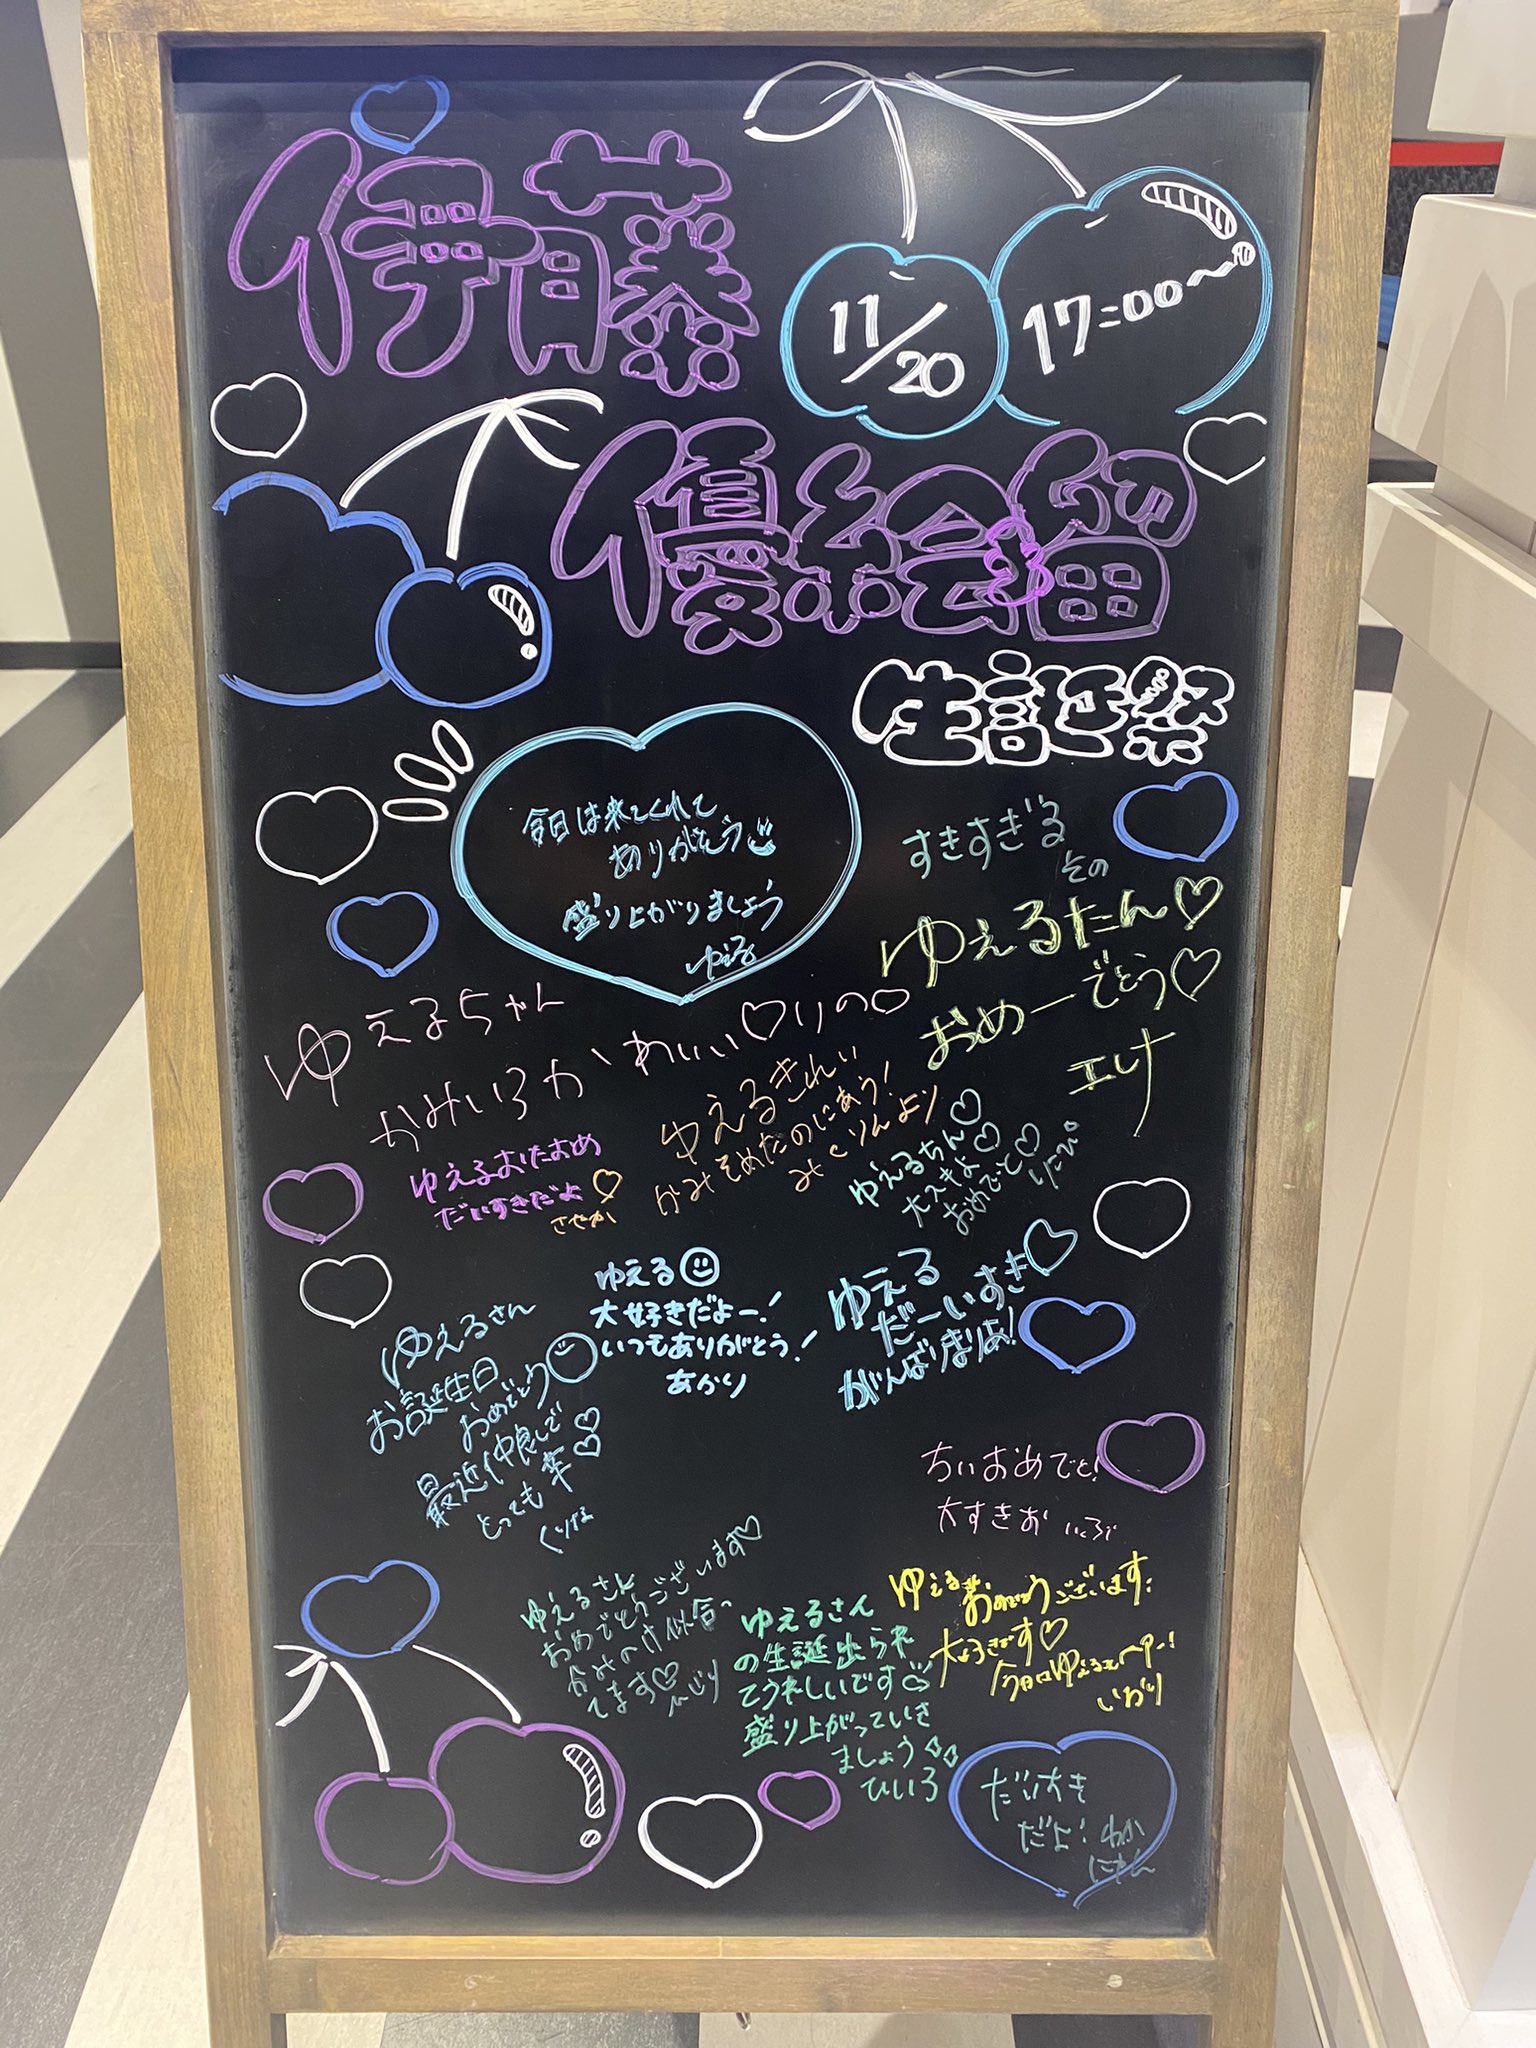 伊藤
11/20
17:00〜
優絵留
生誕祭
今日は来てくれて
ありがとう
盛り上がりましょう
ゆえる
すきすぎる
その
ゆえるたん♡
おめーでとう♡
エレナ
ゆえるちゃん
かみいろかわいい♡りの♡
ゆえるきれい
かみそめたのにあう!
みくりんより
ゆえるおたおめ
だいすきだよ♡
さやか
ゆえるちん♡
大スキよ♡
おめでと♡
りたぴ。
ゆえる
大好きだよー!
いつもありがとう!
あかり
ゆえる
だーいすき♡
がんばりまりあ!
ゆえるさん
お誕生日
おめでとう
最近仲良しで
とっても幸♡♡
くりな
ちぃおめでと!
大すきお いぶ
ゆえるさん
おめでとうございます♡
髪のけ似合っ
てます♡ひじり
ゆえるさん
の生誕出られ
てうれしいです♡
盛り上がっていき
ましょう
ひいろ
おめでとうございます!
大好きです♡
いかり
だい大き
だよ! わか
にゃん